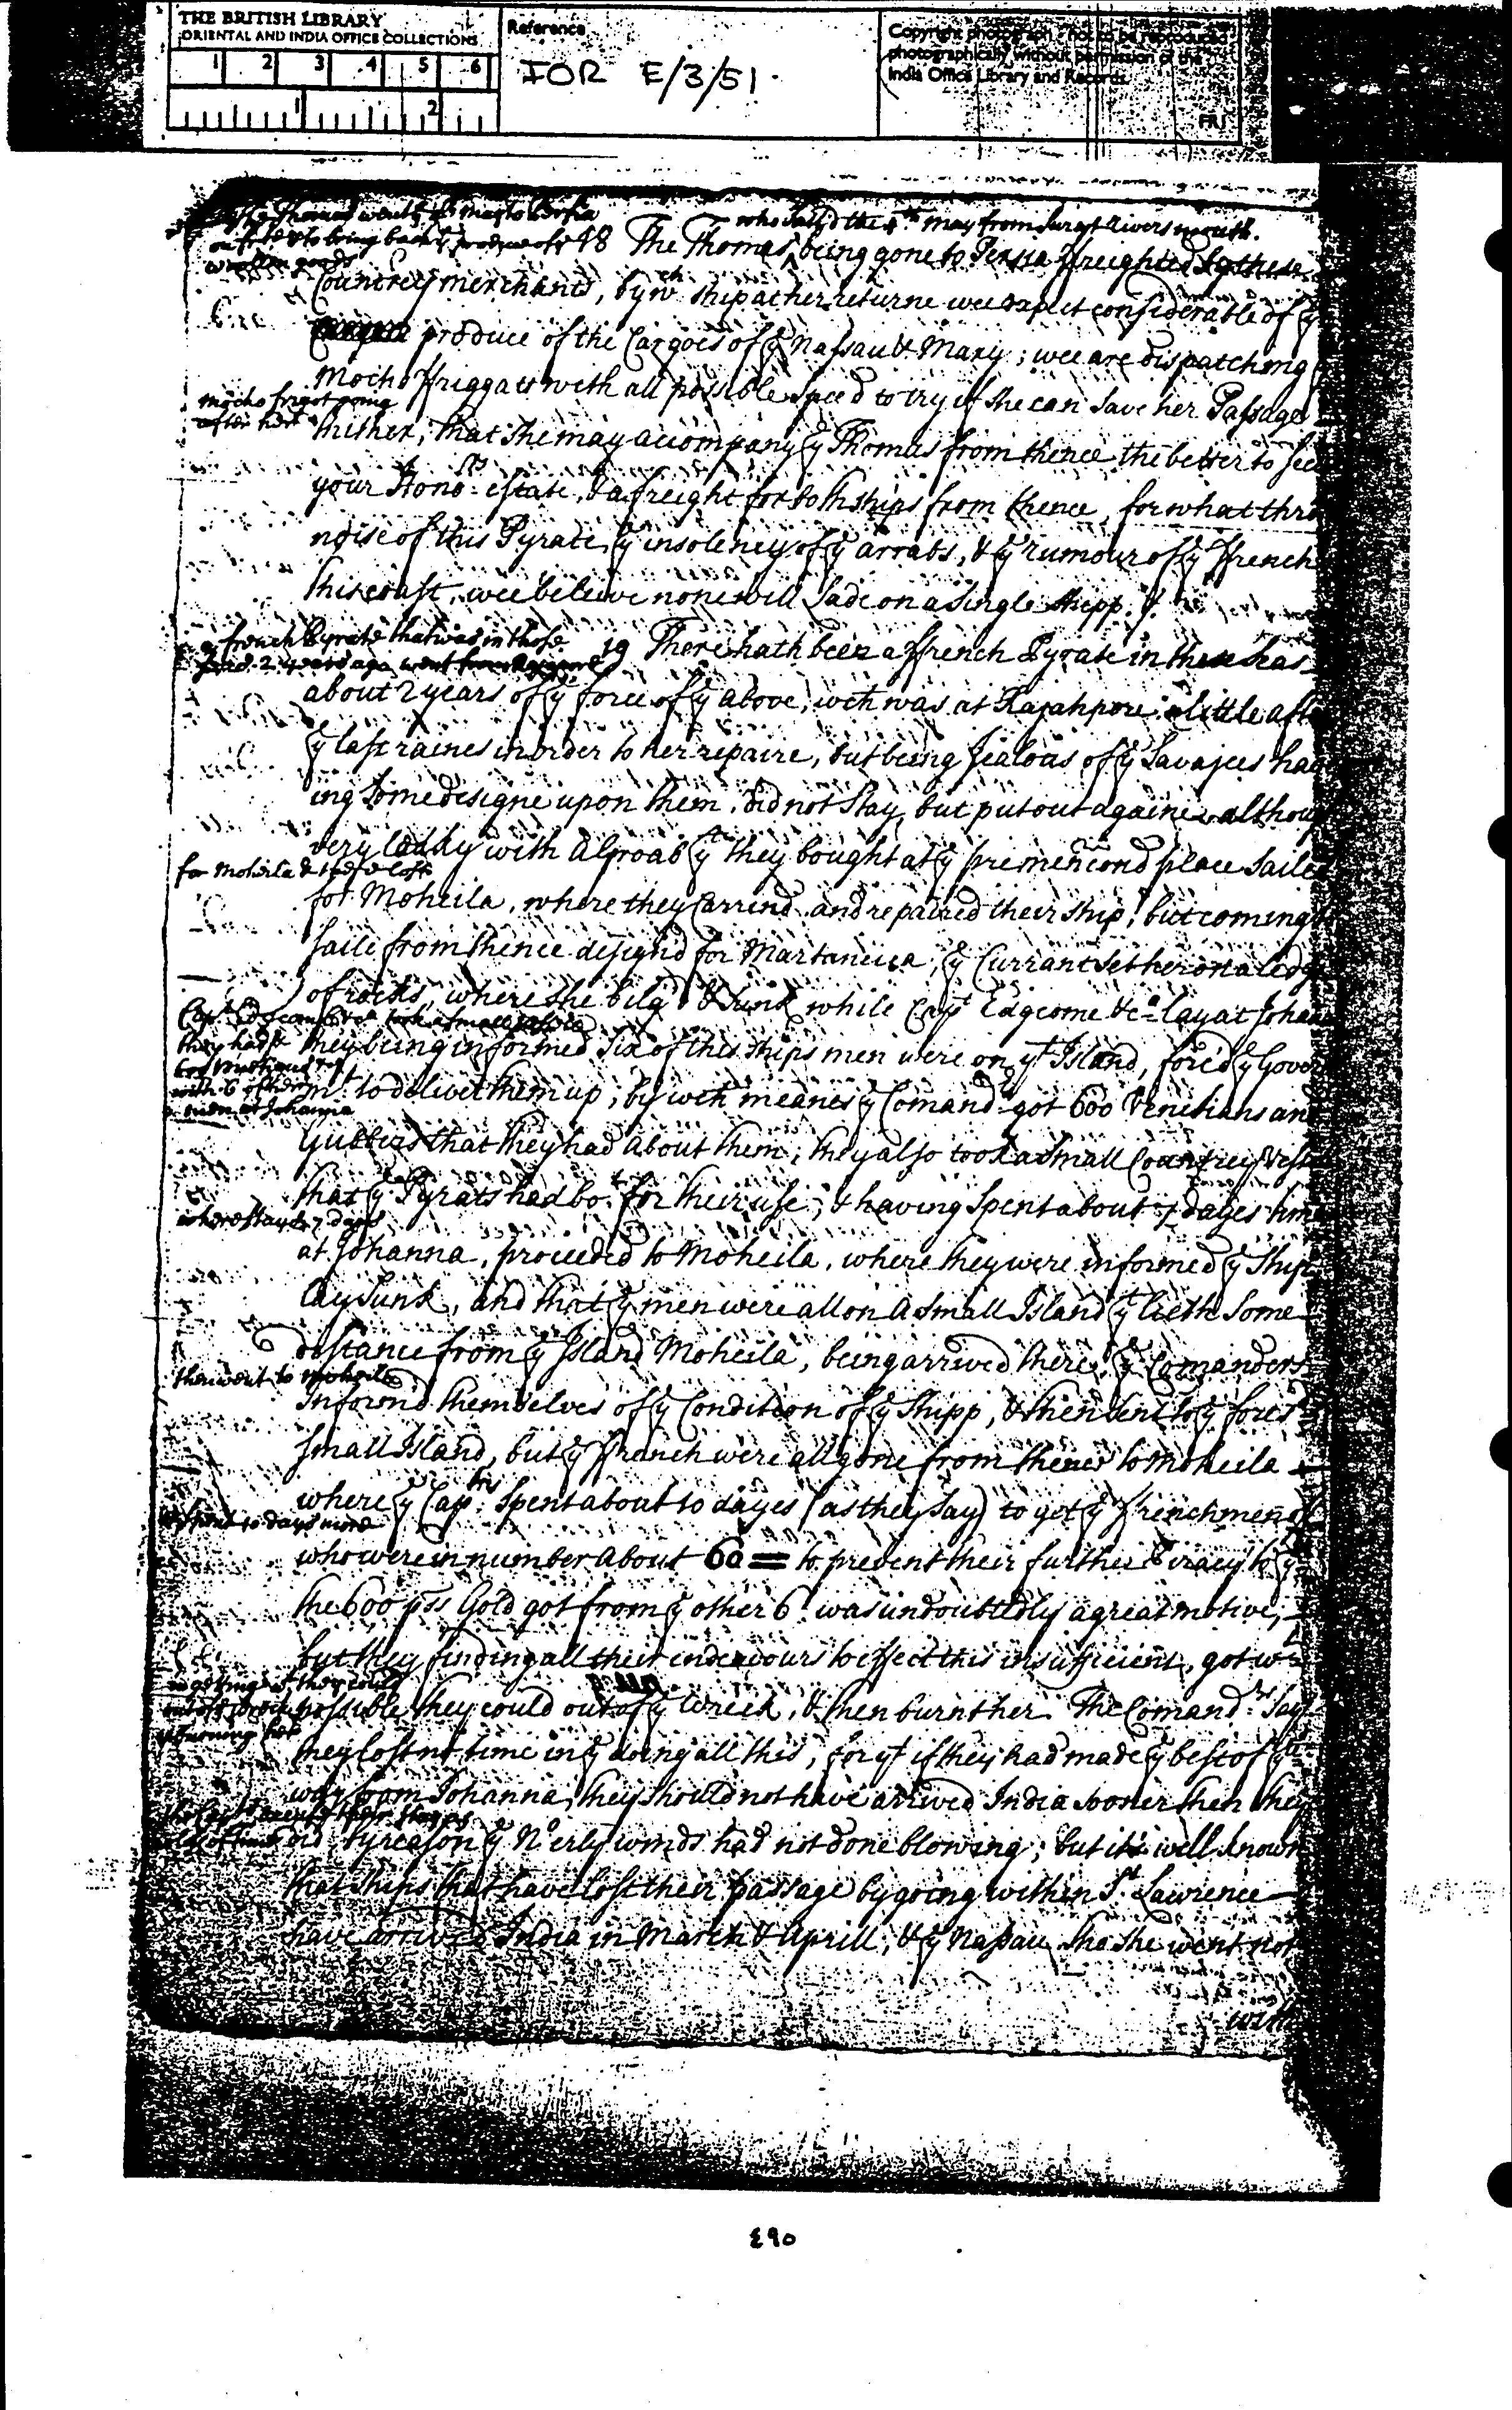 THE BRITISH LIBRARY
ORIENTAL AND INDIA OFFICE COLLECTIONS
1 2 3 4 5 6
1 2
Reference
IOR E/3/51
Copyright photograph - not to be reproduced
photographically without permission of the
India Office Library and Records
who sailed the May from Surat Rivers mouth.
The Thomas went to Persia
on fr to bring back produce of
woollen goods
18 The Thomas, being gone to Persia ffreighted by these
Countrey merchants, by wch ship at her returne wee expect considerable of ye
produce of the Cargoes of ye Nassau & Mary; wee are dispatching
Mocho ffriggatt with all possible speed to try if she can save her Passage
Mocho frigot going
after her
thither, that she may accompany ye Thomas from thence the better to
your Honors estate, & a freight for both ships from thence, for what thro
noise of this Pyrate, ye insolency of ye arrabs, & ye rumour of ye ffrench
this coast, wee beleive none will lade on a single shipp.
a french Pyrate that was in those
seas 2 years ago went from
19 There hath been a ffrench Pyrate in these Seas
about 2 years of ye force of ye above, wch was at Rajahpore a little afte
ye last raines in order to her repaire, but being Jealous of ye Savajees hav
ing some designe upon them, did not stay, but put out againe althoug
very leaky with they bought at ye premencond place saile
for Moheila &
for Moheila, where they Carrend and repaired their ship, but coming
saile from thence designd for Martaneica, ye Currant set her on a ledg
of rocks, where she bilgd & sunk while Capt Edgcome &ca lay at Johan
they being informed six of this ships men were on yt Island, forcd ye Gover
they had
with 6 of their
men at Johanna
nr to deliver them up, by wch meanes ye Comandr got 600 Venetians and
Gubbers that they had about them, they also took a small Countrey Vess
that ye Pyrats had bot for their use, & having spent about 7 dayes time
where stayd 7 days
at Johanna, proceeded to Moheila, where they were informed ye ship
lay sunk, and that ye men were all on a small Island yt lieth some
distance from ye Island Moheila, being arrived there, ye Comanders
then went to Moheila
Informd themselves of ye Condition of ye shipp, & then sent to ye fores
small Island, but ye ffranch were all gone from thence to Moheila
where ye Captns spent about 10 dayes (as they say) to get ye ffrenchmen of
& spent 10 days more
who were in number about 60 = to prevent their further Piracy to
the 600 pss Gold got from ye other 6 was undoubtedly a great motive,
but they finding all their indeavours to effect this insufficient, got wt
in getting wt they could
possible they could out of ye wreck, & then burnt her. The Comandrs say
& burning her
they lost no time in ye doing all this, for yt if they had made ye best of
way from Johanna, they should not have arrived India sooner then they
did by reason ye Noerly winds had not done blowing; but its well known
that ships that have lost their passage by going within St. Lawrence
have arrived India in March & Aprill, & ye Nassau, tho she went not
with
290